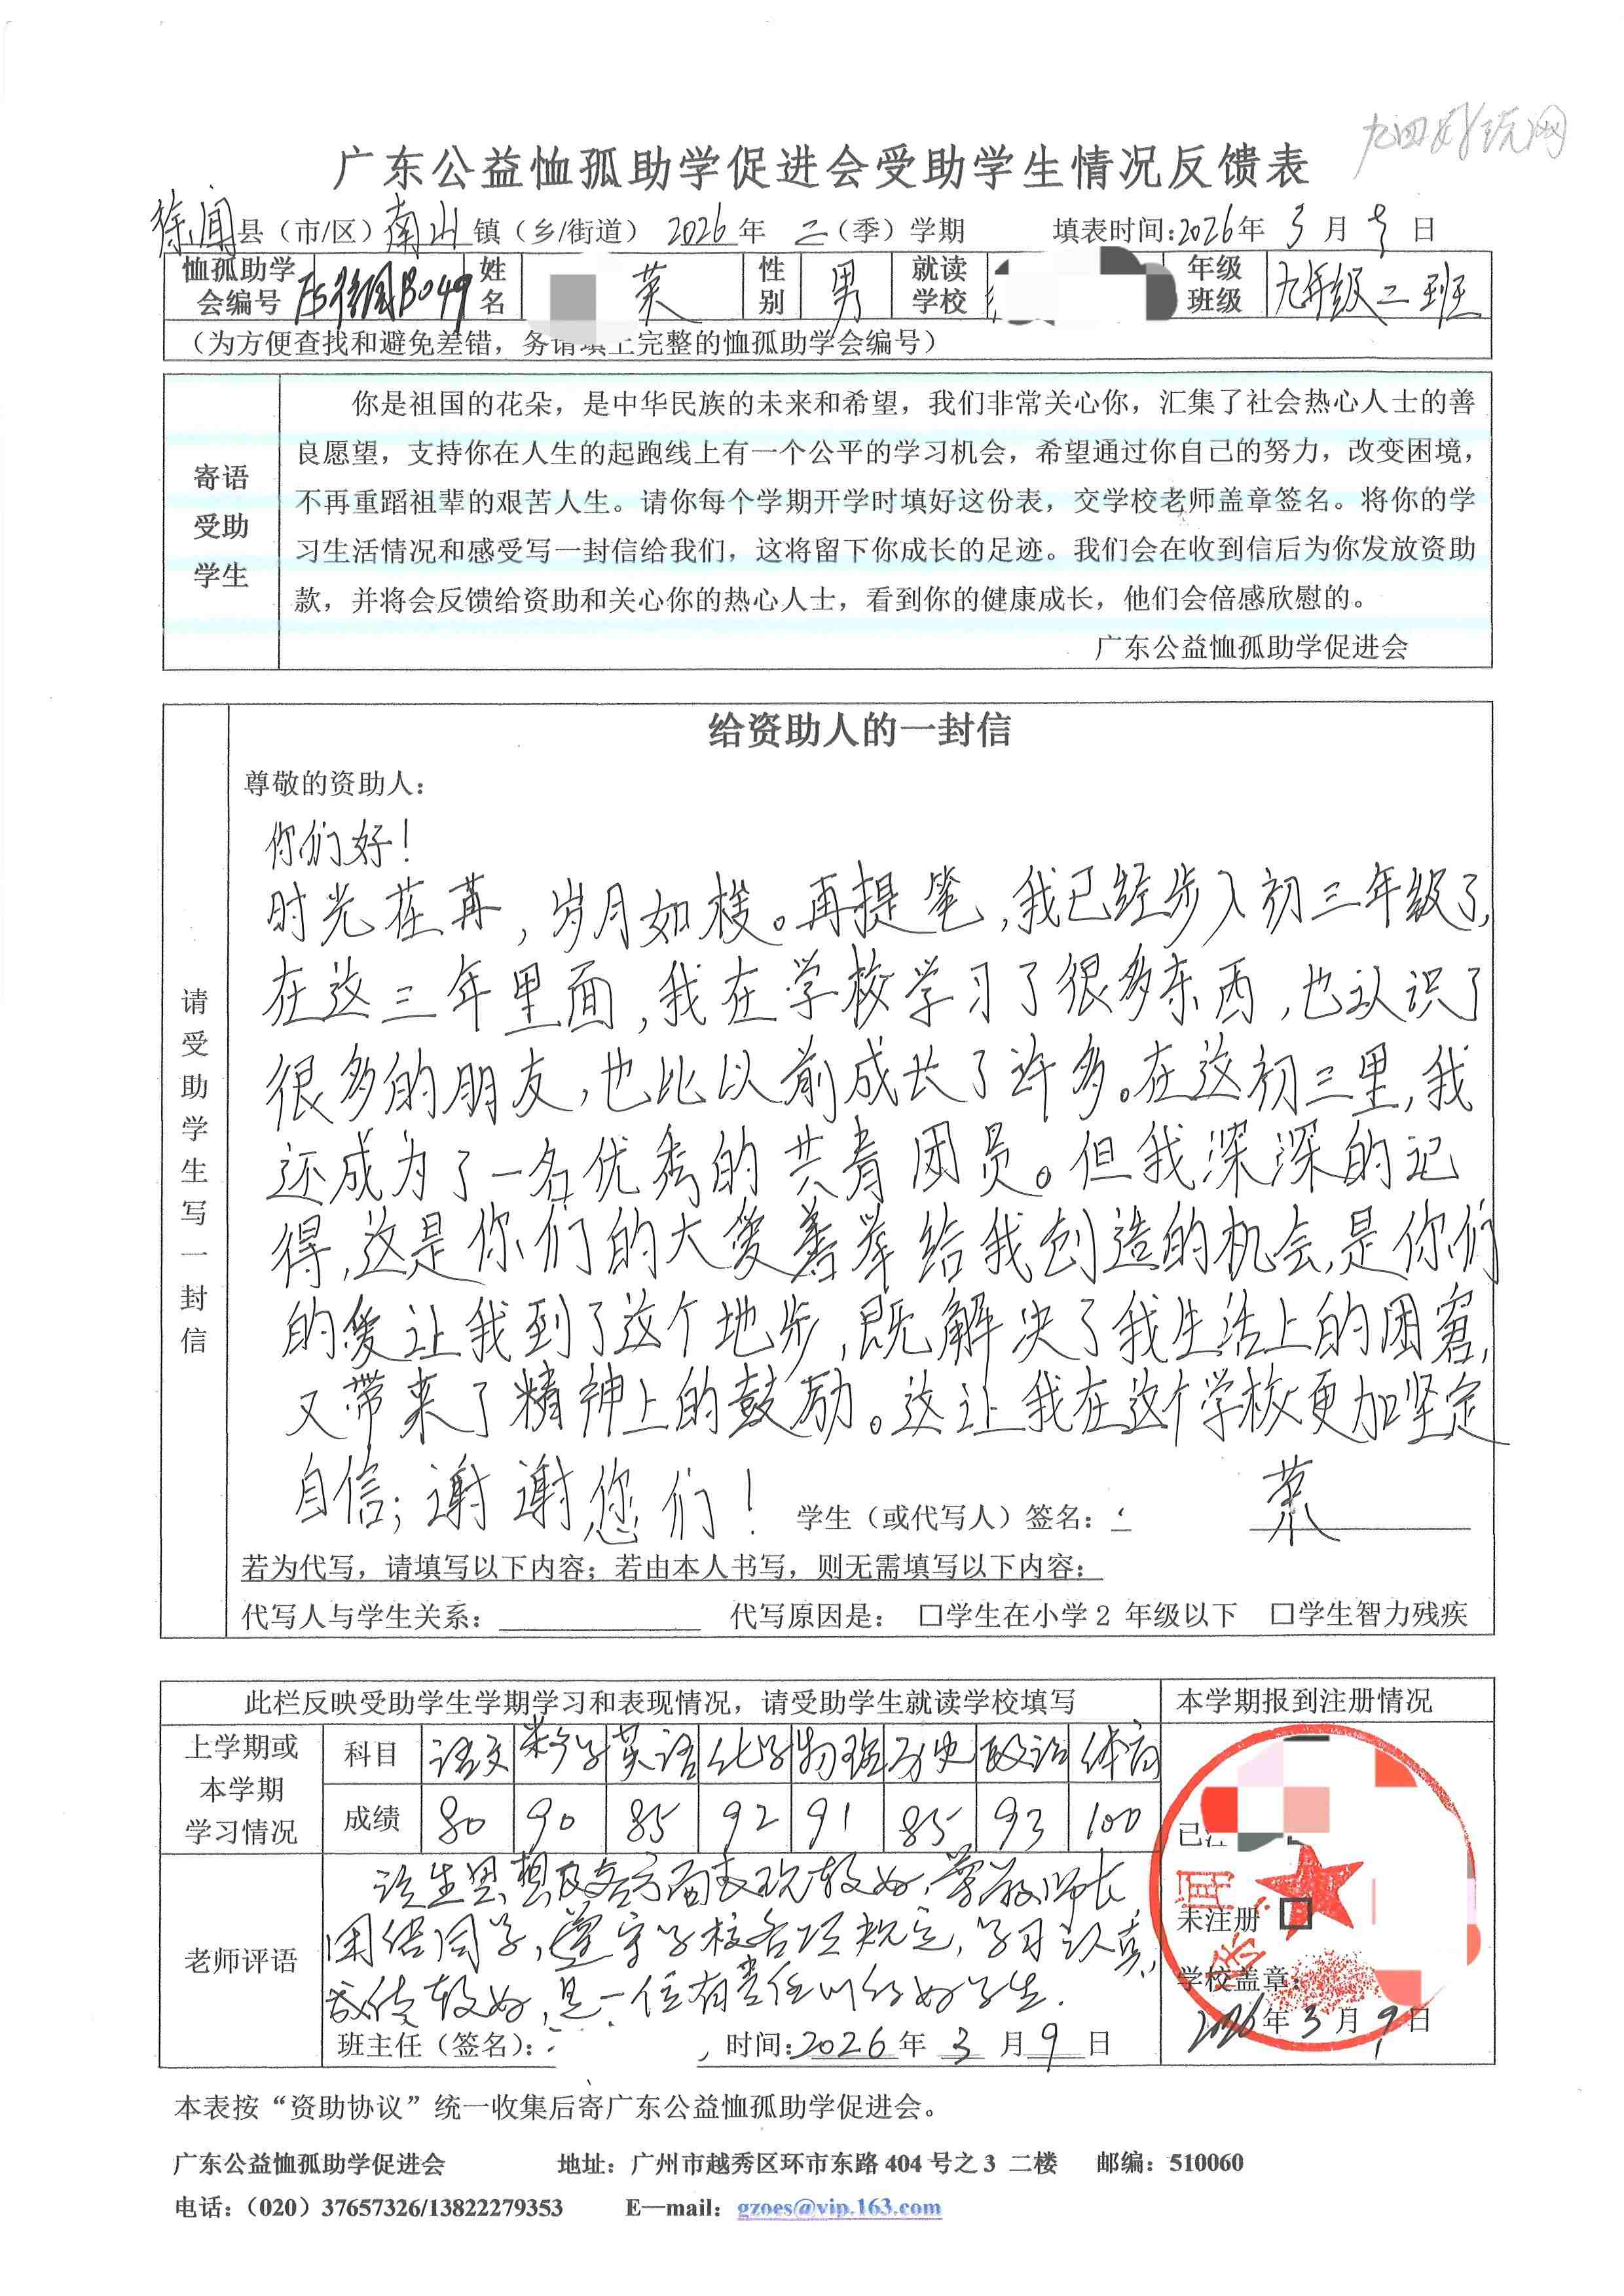 广东公益恤孤助学促进会受助学生情况反馈表
徐闻县（市/区）南山镇（乡/街道）2026年二（季）学期 填表时间:2026年3月 日
恤孤助学会编号 B049 姓名 英 性别 男 就读学校 年级班级 九年级二班
（为方便查找和避免差错，务请填上完整的恤孤助学会编号）
寄语受助学生
你是祖国的花朵，是中华民族的未来和希望，我们非常关心你，汇集了社会热心人士的善
良愿望，支持你在人生的起跑线上有一个公平的学习机会，希望通过你自己的努力，改变困境，
不再重蹈祖辈的艰苦人生。请你每个学期开学时填好这份表，交学校老师盖章签名。将你的学
习生活情况和感受写一封信给我们，这将留下你成长的足迹。我们会在收到信后为你发放资助
款，并将会反馈给资助和关心你的热心人士，看到你的健康成长，他们会倍感欣慰的。
广东公益恤孤助学促进会
请受助学生写一封信
给资助人的一封信
尊敬的资助人：
你们好！
时光荏苒，岁月如梭。再提笔，我已经步入初三年级了，
在这三年里面，我在学校学习了很多东西，也认识了
很多的朋友，也比以前成长了许多。在这初三里，我
还成为了一名优秀的共青团员。但我深深的记
得，这是你们的大爱善举给我创造的机会，是你们
的爱让我到了这个地步，既解决了我生活上的困窘，
又带来了精神上的鼓励。这让我在这个学校更加坚定
自信；谢谢您们！ 学生（或代写人）签名：
若为代写，请填写以下内容；若由本人书写，则无需填写以下内容：
代写人与学生关系： 代写原因是： □学生在小学2 年级以下 □学生智力残疾
此栏反映受助学生学期学习和表现情况，请受助学生就读学校填写 本学期报到注册情况
上学期或本学期学习情况
科目 语文 数学 英语 化学 物理 历史 政治 体育
成绩 80 90 85 92 91 85 93 100
未注册 □
学校盖章：
2026年3月9日
老师评语
该生思想及各方面表现较好，尊敬师长
团结同学，遵守学校各项规定，学习认真，
成绩较好，是一位有责任心的好学生.
班主任（签名）： 时间:2026年3月9日
本表按“资助协议”统一收集后寄广东公益恤孤助学促进会。
广东公益恤孤助学促进会 地址：广州市越秀区环市东路404号之3 二楼 邮编：510060
电话：（020）37657326/13822279353 E—mail：gzoes@vip.163.com